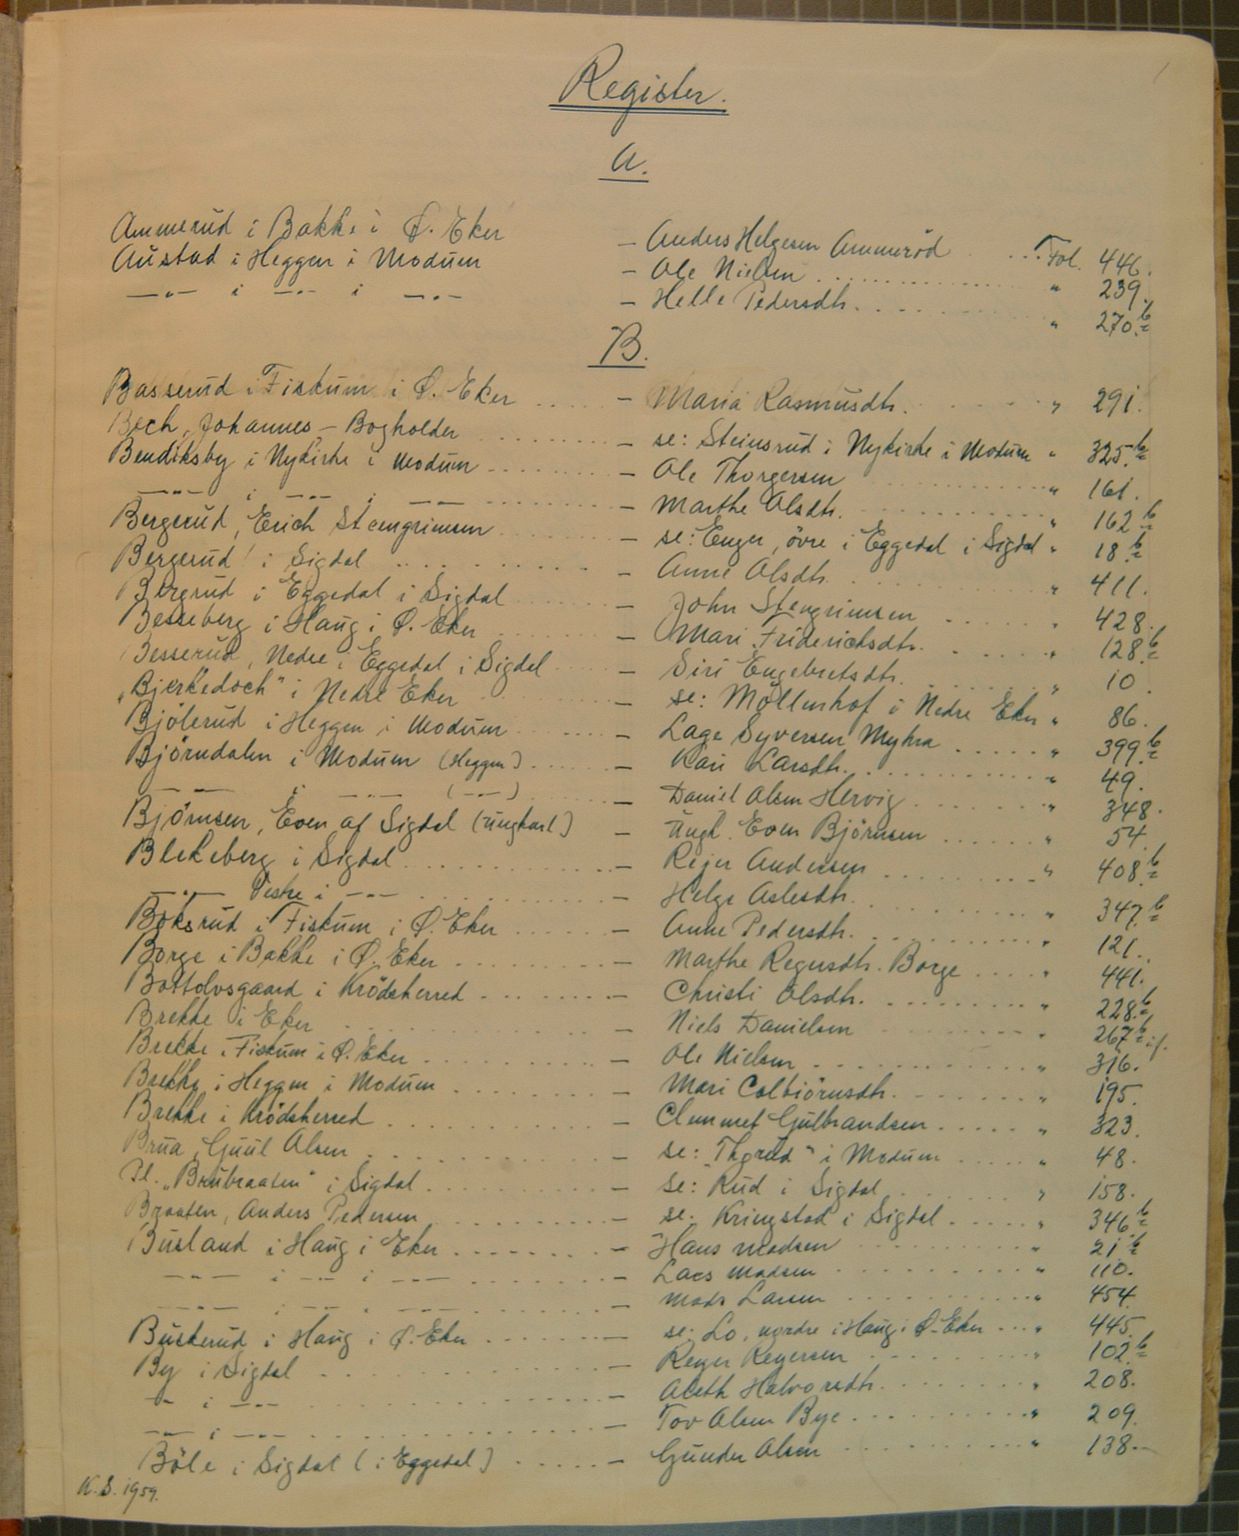 Register.
A.
Ammerud i Bakke i Ø. Eker – Anders Helgesen Ammeröd . . . . Fol. 446.
Austad i Heggen i Modum – Ole Nielsen . . . . " 239.
—"— i —"— i —"— – Helle Pedersdtr. . . . . " 270.b
B.
Basserud i Fiskum i Ø. Eker . . . . – Maria Rasmusdtr. . . . . " 291.
Bech, Johannes – Bogholder . . . . – se: Steinsrud i Nykirke i Modum " 325.b
Bendiksby i Nykirke i Modum . . . . – Ole Thorgersen . . . . " 161.
—"— i —"— i —"— . . . . – Marthe Olsdtr. . . . . " 162 b
Bergerud, Erich Stengrimsen . . . . – se: Enger, övre i Eggedal i Sigdal " 18 b
Bergerud i Sigdal . . . . – Anne Olsdtr. . . . . " 411.
Bergrud i Eggedal i Sigdal . . . . – John Stengrimsen . . . . " 428.
Besseberg i Haug i Ø. Eker . . . . – Mari Friderichsdtr. . . . . " 128.b
Besserud, Nedre i Eggedal i Sigdal . . . . – Siri Engebretsdtr. . . . . " 10.
"Bjerkedoch" i Nedre Eker . . . . – se: Möllenhof i Nedre Eker " 86.
Bjölerud i Heggen i Modum . . . . – Lage Syversen Myhra . . . . " 399.b
Björndalen i Modum (Heggen) . . . . – Kari Larsdtr. . . . . " 49.
—"— i —"— (—"—) . . . . – Daniel Olsen Hervig . . . . " 348.
Bjørnsen, Even af Sigdal (ungkarl) – Ungk. Even Björnsen . . . . " 54.
Blekeberg i Sigdal . . . . – Rejer Andersen . . . . " 408.b
—"— Vestre i —"— . . . . – Helge Aslesdtr. . . . . " 347.b
Boksrud i Fiskum i Ø. Eker . . . . – Anne Pedersdtr. . . . . " 121.
Borge i Bakke i Ø. Eker . . . . – Marthe Regersdtr. Borge . . . . " 441.
Bottolvsgaard i Krödsherred . . . . – Christi Olsdtr. . . . . " 228.b
Brekke i Eker . . . . – Niels Danielsen . . . . " 267.b
Brekke i Fiskum i Ø. Eker . . . . – Ole Nielsen . . . . " 316.
Brekke i Heggen i Modum . . . . – Mari Colbiörnsdtr. . . . . " 195.
Brekke i Krödsherred . . . . – Clemmet Gulbrandsen . . . . " 323.
Brua, Guul Olsen . . . . – se: "Thorud" i Modum . . . . " 48.
Pl. "Brubraaten" i Sigdal . . . . – se: Rud i Sigdal . . . . " 158.
Braaten, Anders Pedersen . . . . – se: Kringstad i Sigdal . . . . " 346.b
Busland i Haug i Eker . . . . – Hans Madsen . . . . " 21 b
—"— i —"— i —"— . . . . – Lars Madsen . . . . " 110.
—"— i —"— i —"— . . . . – Mads Larsen . . . . " 454.
Buskerud i Haug i Ø. Eker . . . . – se: Lo, nordre i Haug i Ø. Eker . . . " 445.
By i Sigdal . . . . – Reyer Reyersen . . . . " 102.b
—"— i —"— . . . . – Aleth Halvorsdtr. . . . . " 208.
—"— i —"— . . . . – Tov Olsen Bye . . . . " 209.
Böle i Sigdal (i Eggedal) . . . . – Gunder Olsen . . . . " 138.
K.S. 1959.